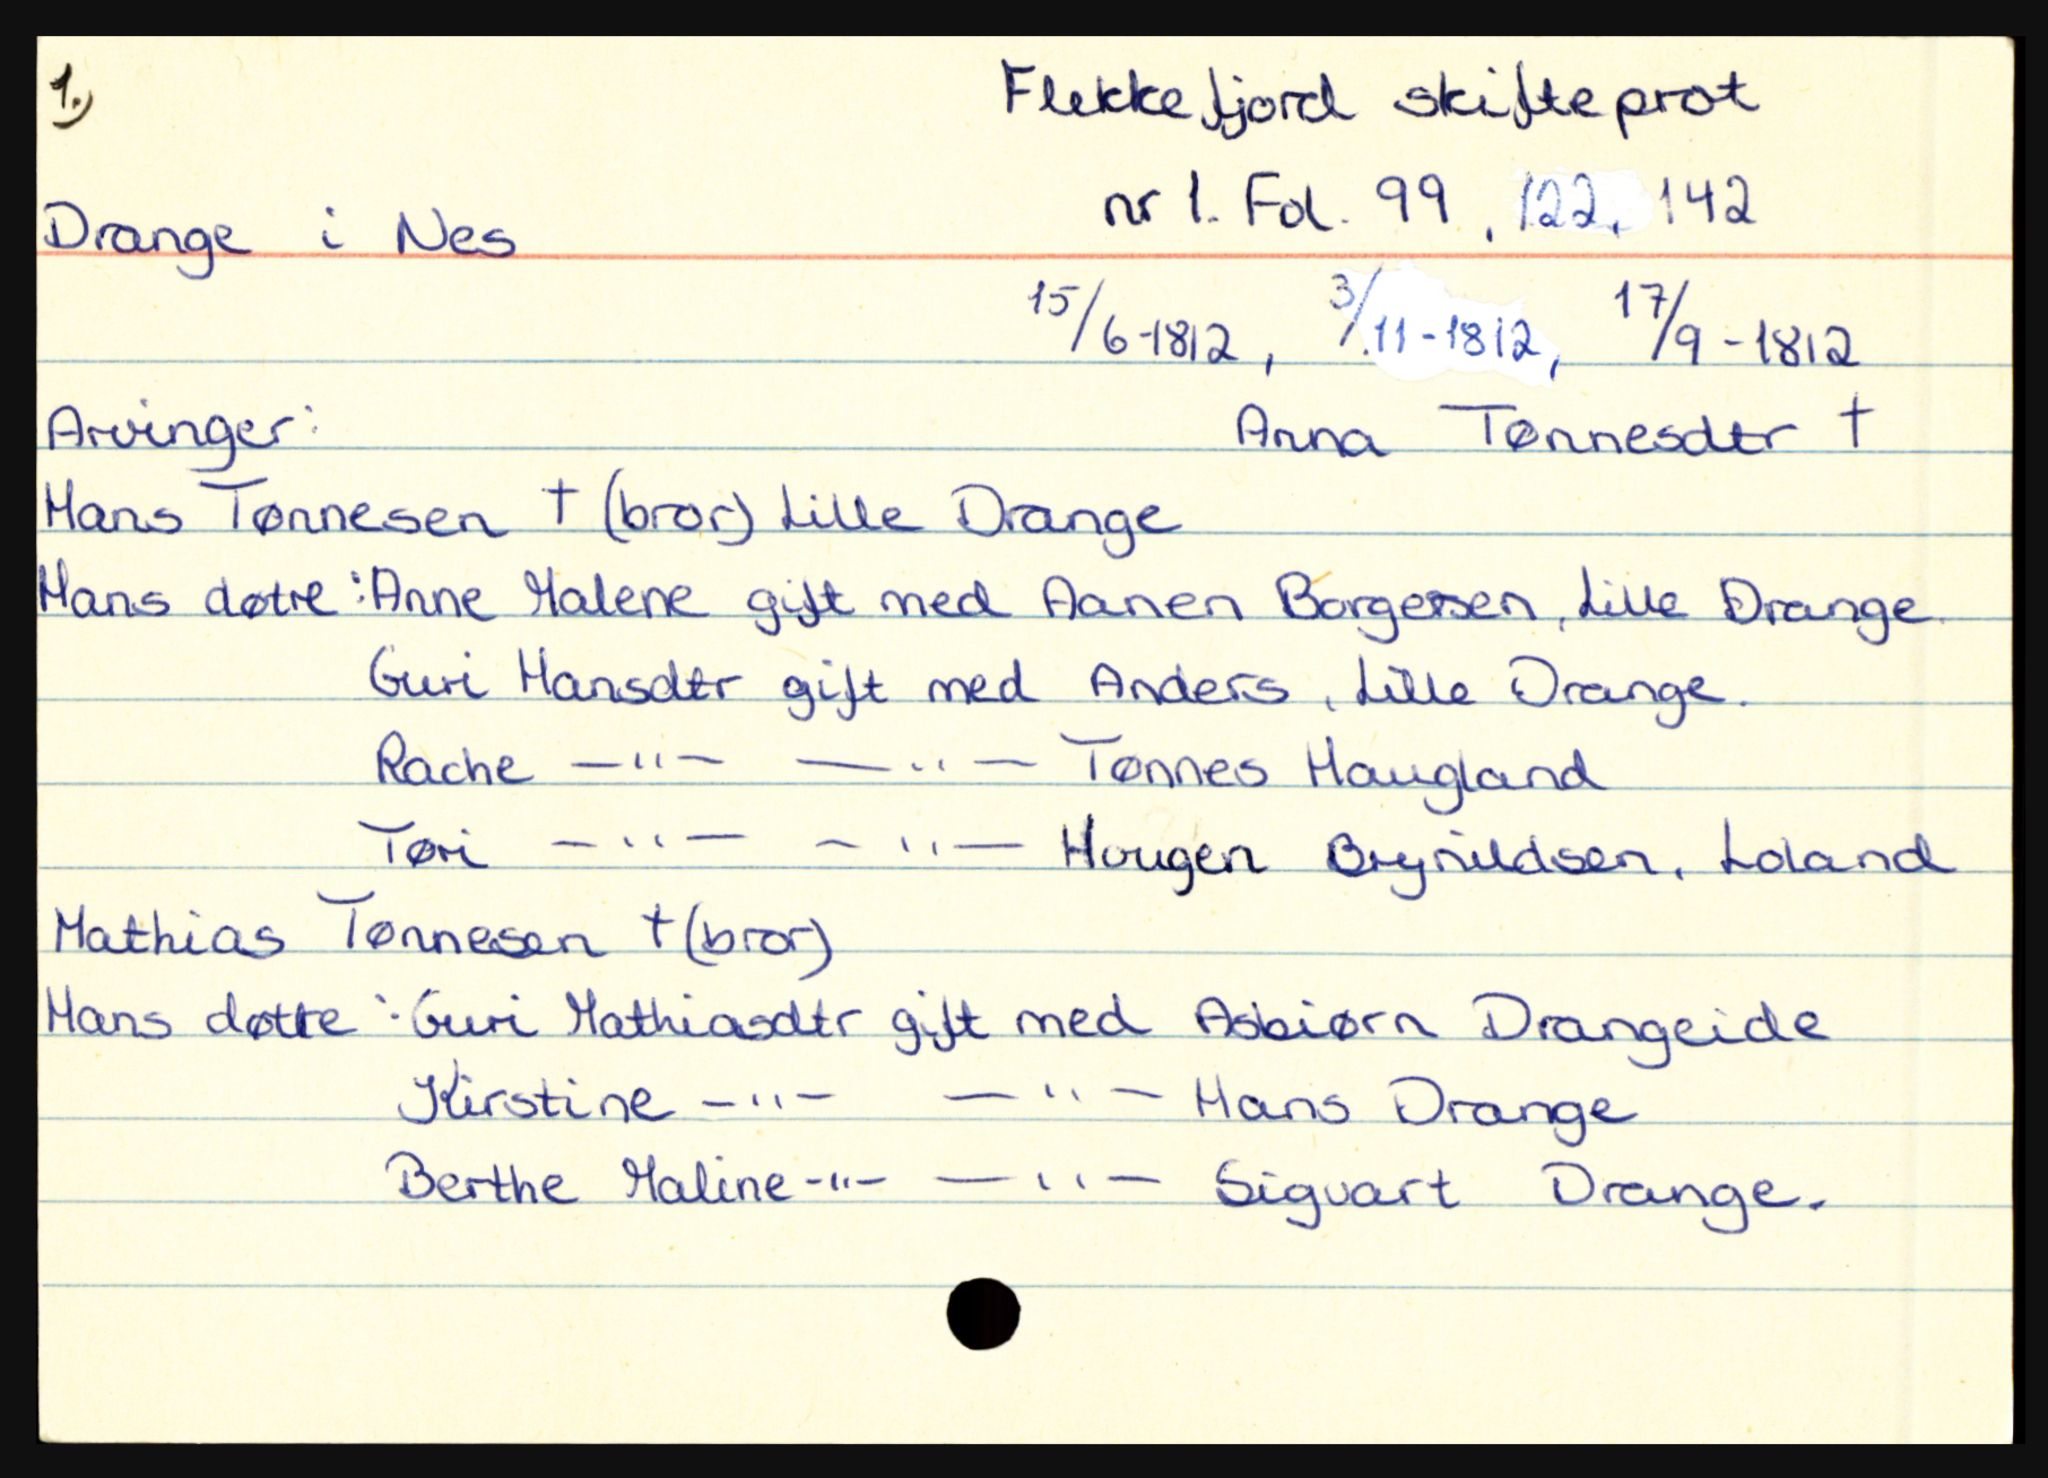 1.)
Flekkefjord skifteprot
nr 1. Fol. 99, 122, 142
Drange i Nes
15/6-1812, 3/11-1812, 17/9-1812
Arvinger: Anna Tønnesdtr †
Hans Tønnesen † (bror) Lille Drange
Hans døtre: Anne Malene gift med Aanen Borgersen, Lille Drange.
Guri Hansdtr gift med Anders, Lille Drange.
Rache —"— —"— Tønnes Haugland
Tøri —"— —"— Hougen Brynildsen, Loland
Mathias Tønnesen † (bror)
Hans døtre: Guri Mathiasdtr gift med Asbiørn Drangeide
Kirstine —"— —"— Hans Drange
Berthe Maline -"- —"— Siguart Drange.